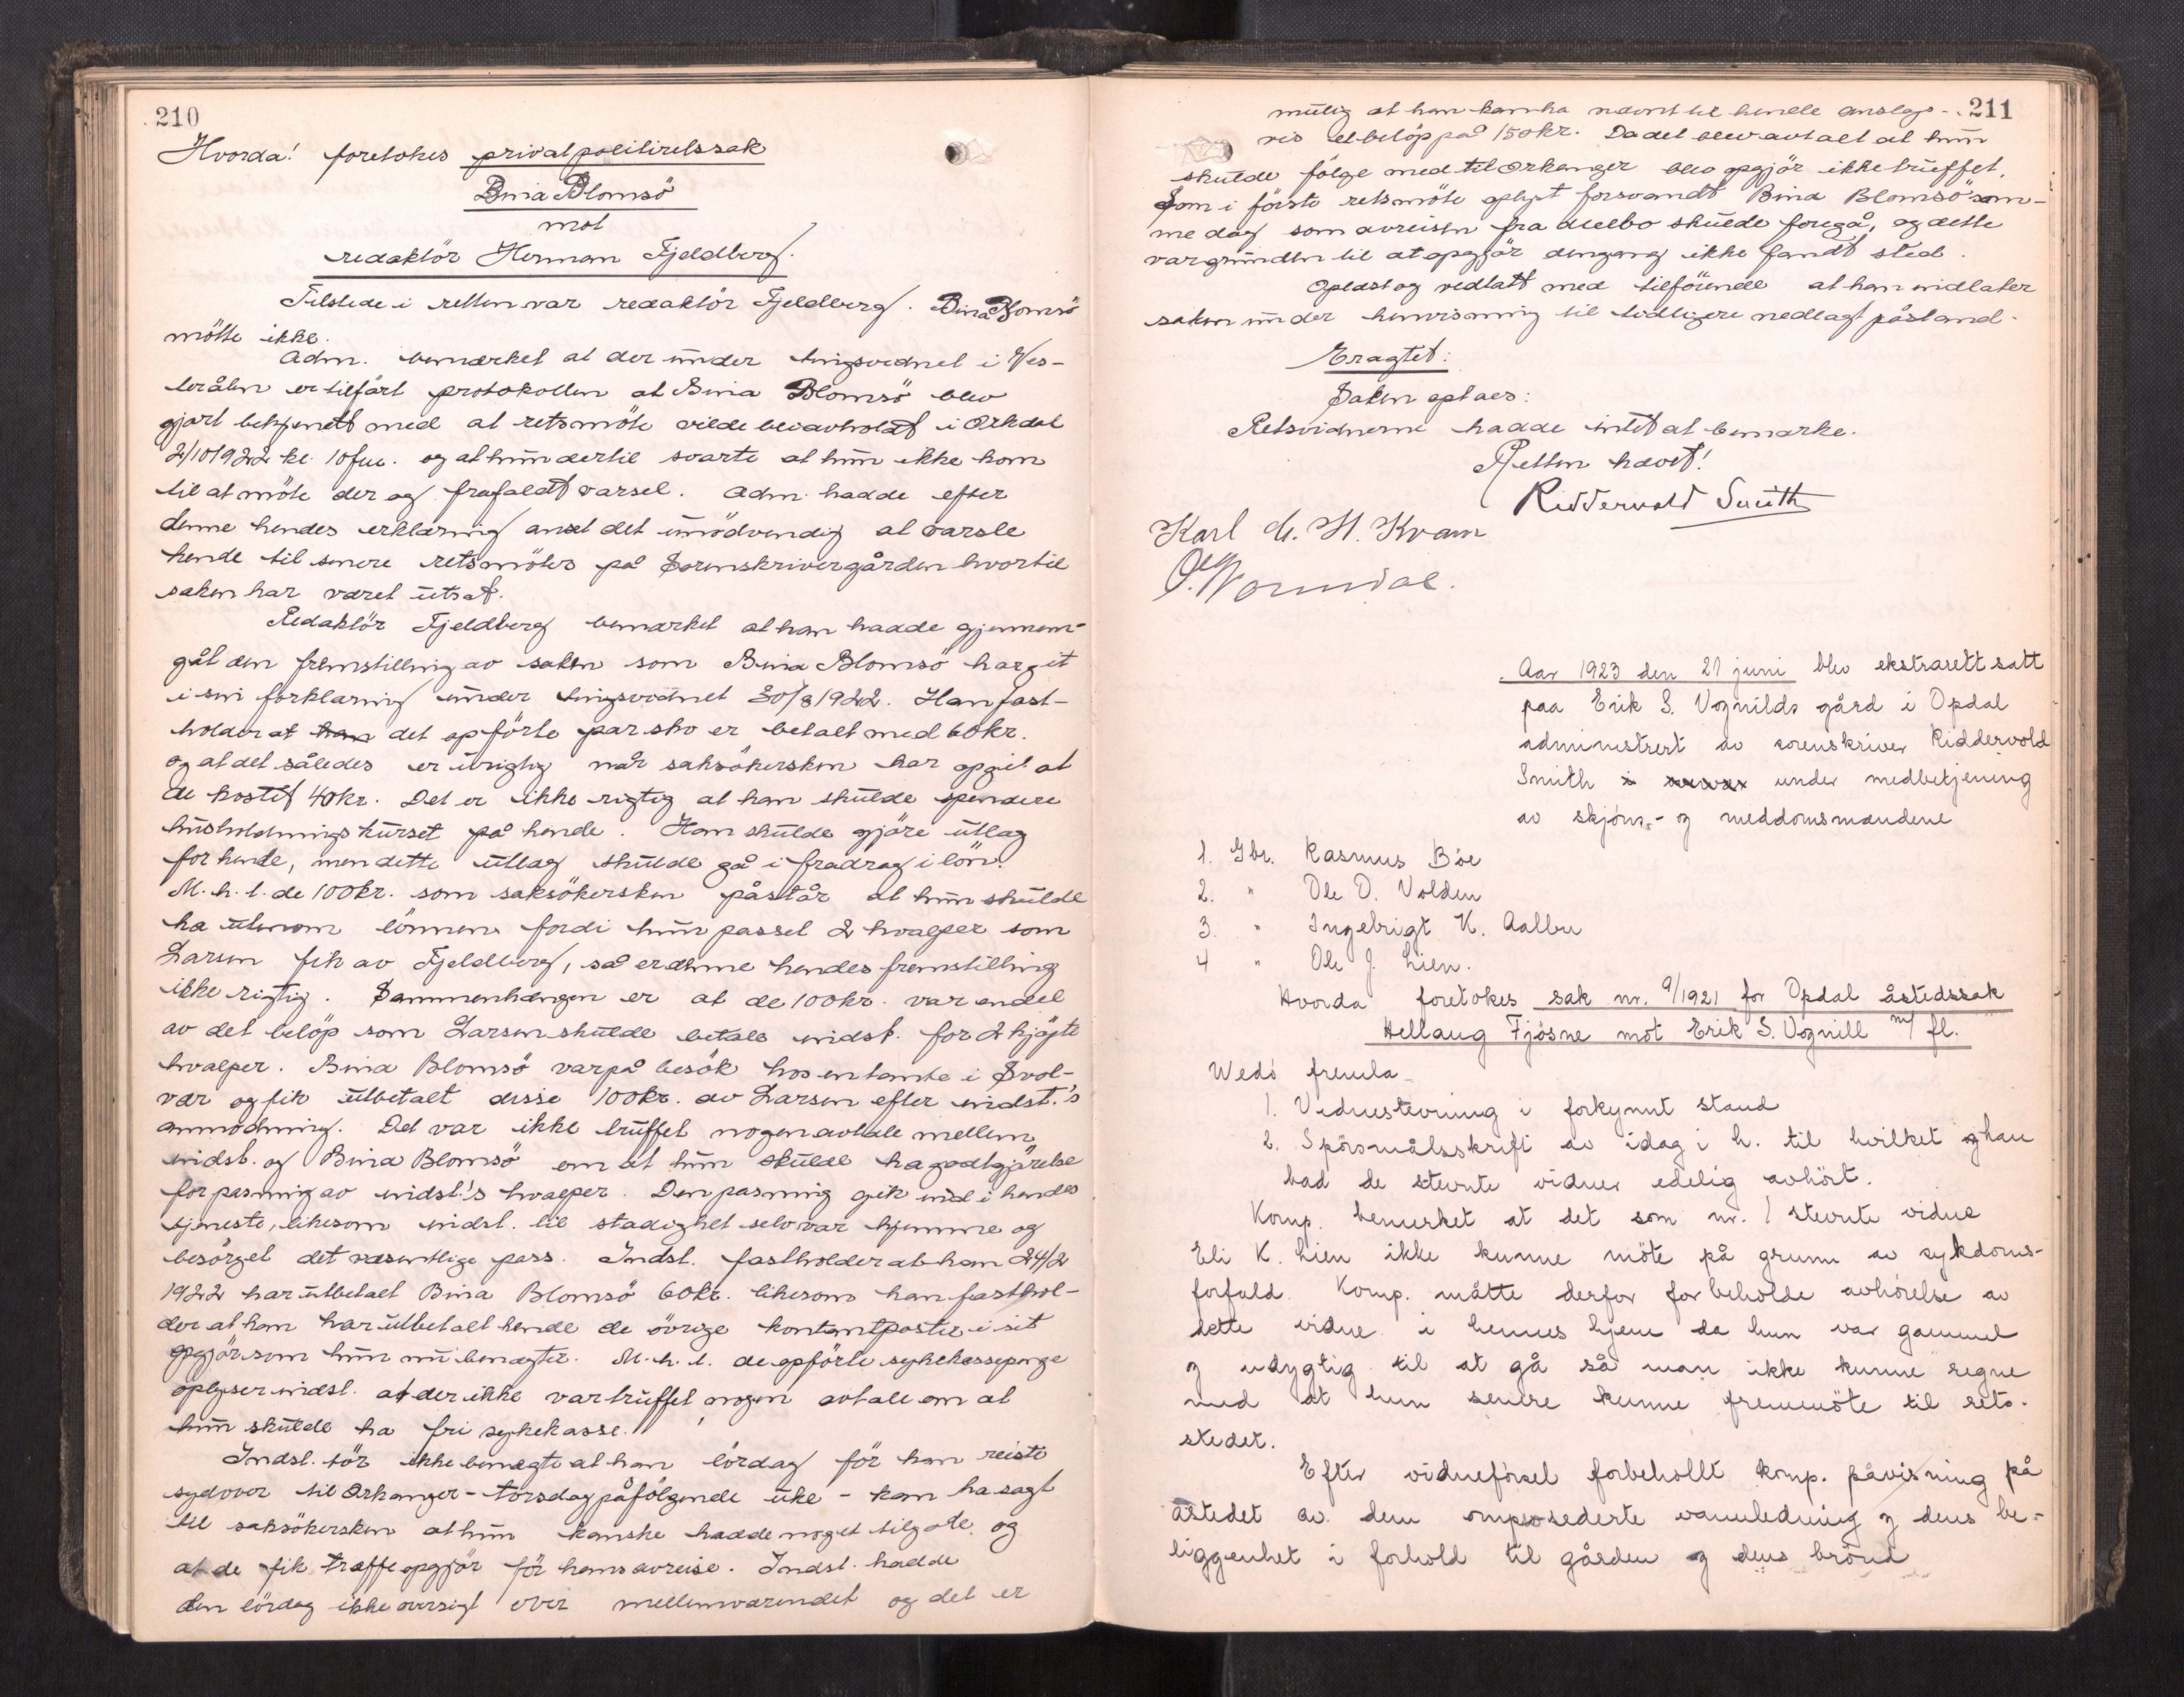 210
Hvorda! foretokes privat politiretssak
Bina Blomsö
mot
redaktör Herman Fjeldberg.
Tilstede i retten var redaktör Fjeldberg. Bina Blomsö
mötte ikke.
Adm. bemerket at der under tingsvidnet i Ves-
terålen er tilfört protokollen at Bina Blomsö blev
gjort bekjendt med at retsmöte vilde bli avholdt i Orkdal
2/10 1922 kl. 10 fm. og at hun dertil svarte at hun ikke kom
til at möte der og frafaldt varsel. Adm. hadde efter
denne hendes erklæring anset det unödvendig at varsle
hende til senere retsmöter på Sorenskrivergården hvortil
saken har været utsat.
Redaktör Fjeldberg bemerket at han hadde gjennem-
gåt den fremstilling av saken som Bina Blomsö har git
i sin forklaring under tingsvidnet 30/8 1922. Han fast-
holder at han det opförte par sko er betalt med 60 kr.
og at det således er urigtig når saksökersken har opgit at
de kostet 40 kr. Det er ikke rigtig at han skulde spendere
husholdningskurset på hende. Han skulde gjöre utlæg
for hende, men dette utlæg skulde gå i fradrag i lön.
M.h.t. de 100 kr. som saksökersken påstår at hun skulde
ha utenom lönnen fordi hun passet 2 hvalper som
Larsen fik av Fjeldberg, så er denne hendes fremstilling
ikke rigtig. Sammenhængen er at de 100 kr. var en del
av det belöp som Larsen skulde betale indst. for 2 kjöpte
hvalper. Bina Blomsö var på besök hos en tante i Svol-
vær og fik utbetalt disse 100 kr. av Larsen efter indst.'s
anmodning. Det var ikke truffet nogen avtale mellem
indst. og Bina Blomsö om at hun skulde ha godtgjörelse
for pasning av indst.'s hvalper. Den pasning gik ind i hendes
tjeneste, likesom indst. til stadighet selv var hjemme og
besörget det væsentlige pass. Indst. fastholder at han 24/2
1922 har utbetalt Bina Blomsö 60 kr. likesom han fasthol-
der at han har utbetalt hende de övrige kontantposter i sit
opgjör som hun nu benegter. M.h.t. de opförte sykekassepenge
oplyser indst. at der ikke var truffet nogen avtale om at
hun skulde ha fri sykekasse.
Indst. tör ikke benegte at han lördag för han reiste
sydover til Orkanger - torsdag påfölgende uke - kan ha sagt
til saksökersken at hun kanske hadde noget tilgode og
at de fik træffe opgjör för hans avreise. Indst. hadde
den lördag ikke oversigt over mellemværendet og det er
211
mulig at han kan ha nævnt til hende anslags-
vis et belöp på 150 kr. Da det blev avtalt at hun
skulde fölge med til Orkanger blev opgjör ikke truffet.
Som i förste retsmöte oplyst forsvandt Bina Blomsö sam-
me dag som avreisen fra Melbo skulde foregå, og dette
var grunden til at opgjör dengang ikke fandt sted.
Oplæst og vedtatt med tilföiende at han indlater
saken under henvisning til tidligere nedlagt påstand.
Eragtet:
Saken optaes:
Retsvidnerne hadde intet at bemerke.
Retten hævet!
Ridderwold Smith
Karl M. H. Kvam
O. Wormdal.
Aar 1923 den 21 juni blev ekstrarett satt
paa Erik S. Vognilds gård i Opdal
administrert av sorenskriver Riddervold
Smith under medbetjening
av skjöns- og meddomsmændene
1. Gbr. Rasmus Böe
2. " Ole O. Volden
3. " Ingebrigt K. Aalbu
4 " Ole J. Lien.
Hvorda foretokes sak nr. 9/1921 for Opdal åstedssak
Hellaug Fjösne mot Erik S. Vognill m/ fl.
Wedö fremla
1. Vidnestevning i forkynnt stand
2. Spörsmålsskrift av idag i h. til hvilket han
bad de stevnte vidner edelig avhört.
Komp. bemerket at det som nr. 1 stevnte vidne
Eli K. Lien ikke kunne möte på grunn av sykdoms-
forfald. Komp. måtte derfor forbeholde avhörelse av
dette vidne i hennes hjem da hun var gammel
og udygtig til at gå så man ikke kunne regne
med at hun senere kunne fremmöte til rets-
stedet.
Efter vidneförsel forbeholdt komp. påvisning på
åstedet av den omprosederte vannledning og dens be-
liggenhet i forhold til gården og dens brönd